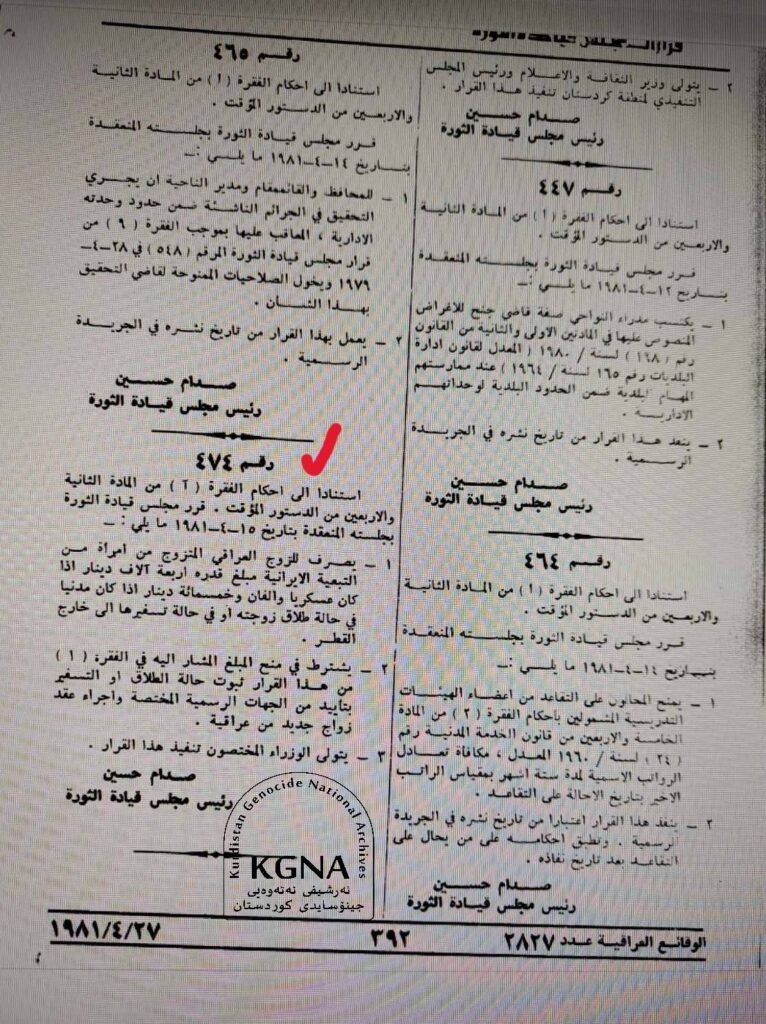 قرارات مجلس قيادة الثورة
٢ ــ يتولى وزير الثقافة والاعلام ورئيس المجلس
التنفيذي لمنطقة كردستان تنفيذ هذا القرار .
صدام حسين
رئيس مجلس قيادة الثورة
رقم ٤٤٧
استنادا الى احكام الفقرة (أ) من المادة الثانية
والاربعين من الدستور المؤقت .
قرر مجلس قيادة الثورة بجلسته المنعقدة
بتاريخ ١٢-٤-١٩٨١ ما يلي :ــ
١ ــ يكتسب مدراء النواحي صفة قاضي جنح للاغراض
المنصوص عليها في المادتين الاولى والثانية من القانون
رقم (١٦٨) لسنة / ١٩٨٠ (المعدل لقانون ادارة
البلديات رقم ١٦٥ لسنة / ١٩٦٤) عند ممارستهم
المهام البلدية ضمن الحدود البلدية لوحداتهم
الادارية .
٢ ــ ينفذ هذا القرار من تاريخ نشره في الجريدة
الرسمية .
صدام حسين
رئيس مجلس قيادة الثورة
رقم ٤٦٤
استنادا الى احكام الفقرة (أ) من المادة الثانية
والاربعين من الدستور المؤقت .
قرر مجلس قيادة الثورة بجلسته المنعقدة
بتاريخ ١٤-٤-١٩٨١ ما يلي :ــ
١ ــ يمنح المحالون على التقاعد من اعضاء الهيئات
التدريسية المشمولين باحكام الفقرة (٢) من المادة
الخامسة والاربعين من قانون الخدمة المدنية رقم
(٢٤) لسنة / ١٩٦٠ المعدل ، مكافاة تعادل
الرواتب الاسمية لمدة ستة اشهر بمقياس الراتب
الاخير بتاريخ الاحالة على التقاعد .
٢ ــ ينفذ هذا القرار اعتبارا من تاريخ نشره في الجريدة
الرسمية . وتطبق احكامه على من يحال على
التقاعد بعد تاريخ نفاذه .
صدام حسين
رئيس مجلس قيادة الثورة
رقم ٤٦٥
استنادا الى احكام الفقرة (أ) من المادة الثانية
والاربعين من الدستور المؤقت .
قرر مجلس قيادة الثورة بجلسته المنعقدة
بتاريخ ١٤-٤-١٩٨١ ما يلي :ــ
١ ــ للمحافظ والقائممقام ومدير الناحية ان يجري
التحقيق في الجرائم الناشئة ضمن حدود وحدته
الادارية ، المعاقب عليها بموجب الفقرة (٩) من
قرار مجلس قيادة الثورة المرقم (٥٤٨) في ٢٨-٤-
١٩٧٩ ويخول الصلاحيات الممنوحة لقاضي التحقيق
بهذا الشأن .
٢ ــ يعمل بهذا القرار من تاريخ نشره في الجريدة
الرسمية .
صدام حسين
رئيس مجلس قيادة الثورة
رقم ٤٧٤
استنادا الى احكام الفقرة (آ) من المادة الثانية
والاربعين من الدستور المؤقت . قرر مجلس قيادة الثورة
بجلسته المنعقدة بتاريخ ١٥-٤-١٩٨١ ما يلي :ــ
١ ــ يصرف للزوج العراقي المتزوج من امرأة من
التبعية الايرانية مبلغ قدره اربعة آلاف دينار اذا
كان عسكريا والفان وخمسمائة دينار اذا كان مدنيا
في حالة طلاق زوجته او في حالة تسفيرها الى خارج
القطر .
٢ ــ يشترط في منح المبلغ المشار اليه في الفقرة (١)
من هذا القرار ثبوت حالة الطلاق او التسفير
بتأييد من الجهات الرسمية المختصة واجراء عقد
زواج جديد من عراقية .
٣ ــ يتولى الوزراء المختصون تنفيذ هذا القرار .
صدام حسين
رئيس مجلس قيادة الثورة
Kurdistan Genocide National Archives
KGNA
ئەرشیفی نەتەوەیی
جینۆسایدی کوردستان
الوقائع العراقية عدد ٢٨٢٧
٣٩٢
١٩٨١/٤/٢٧